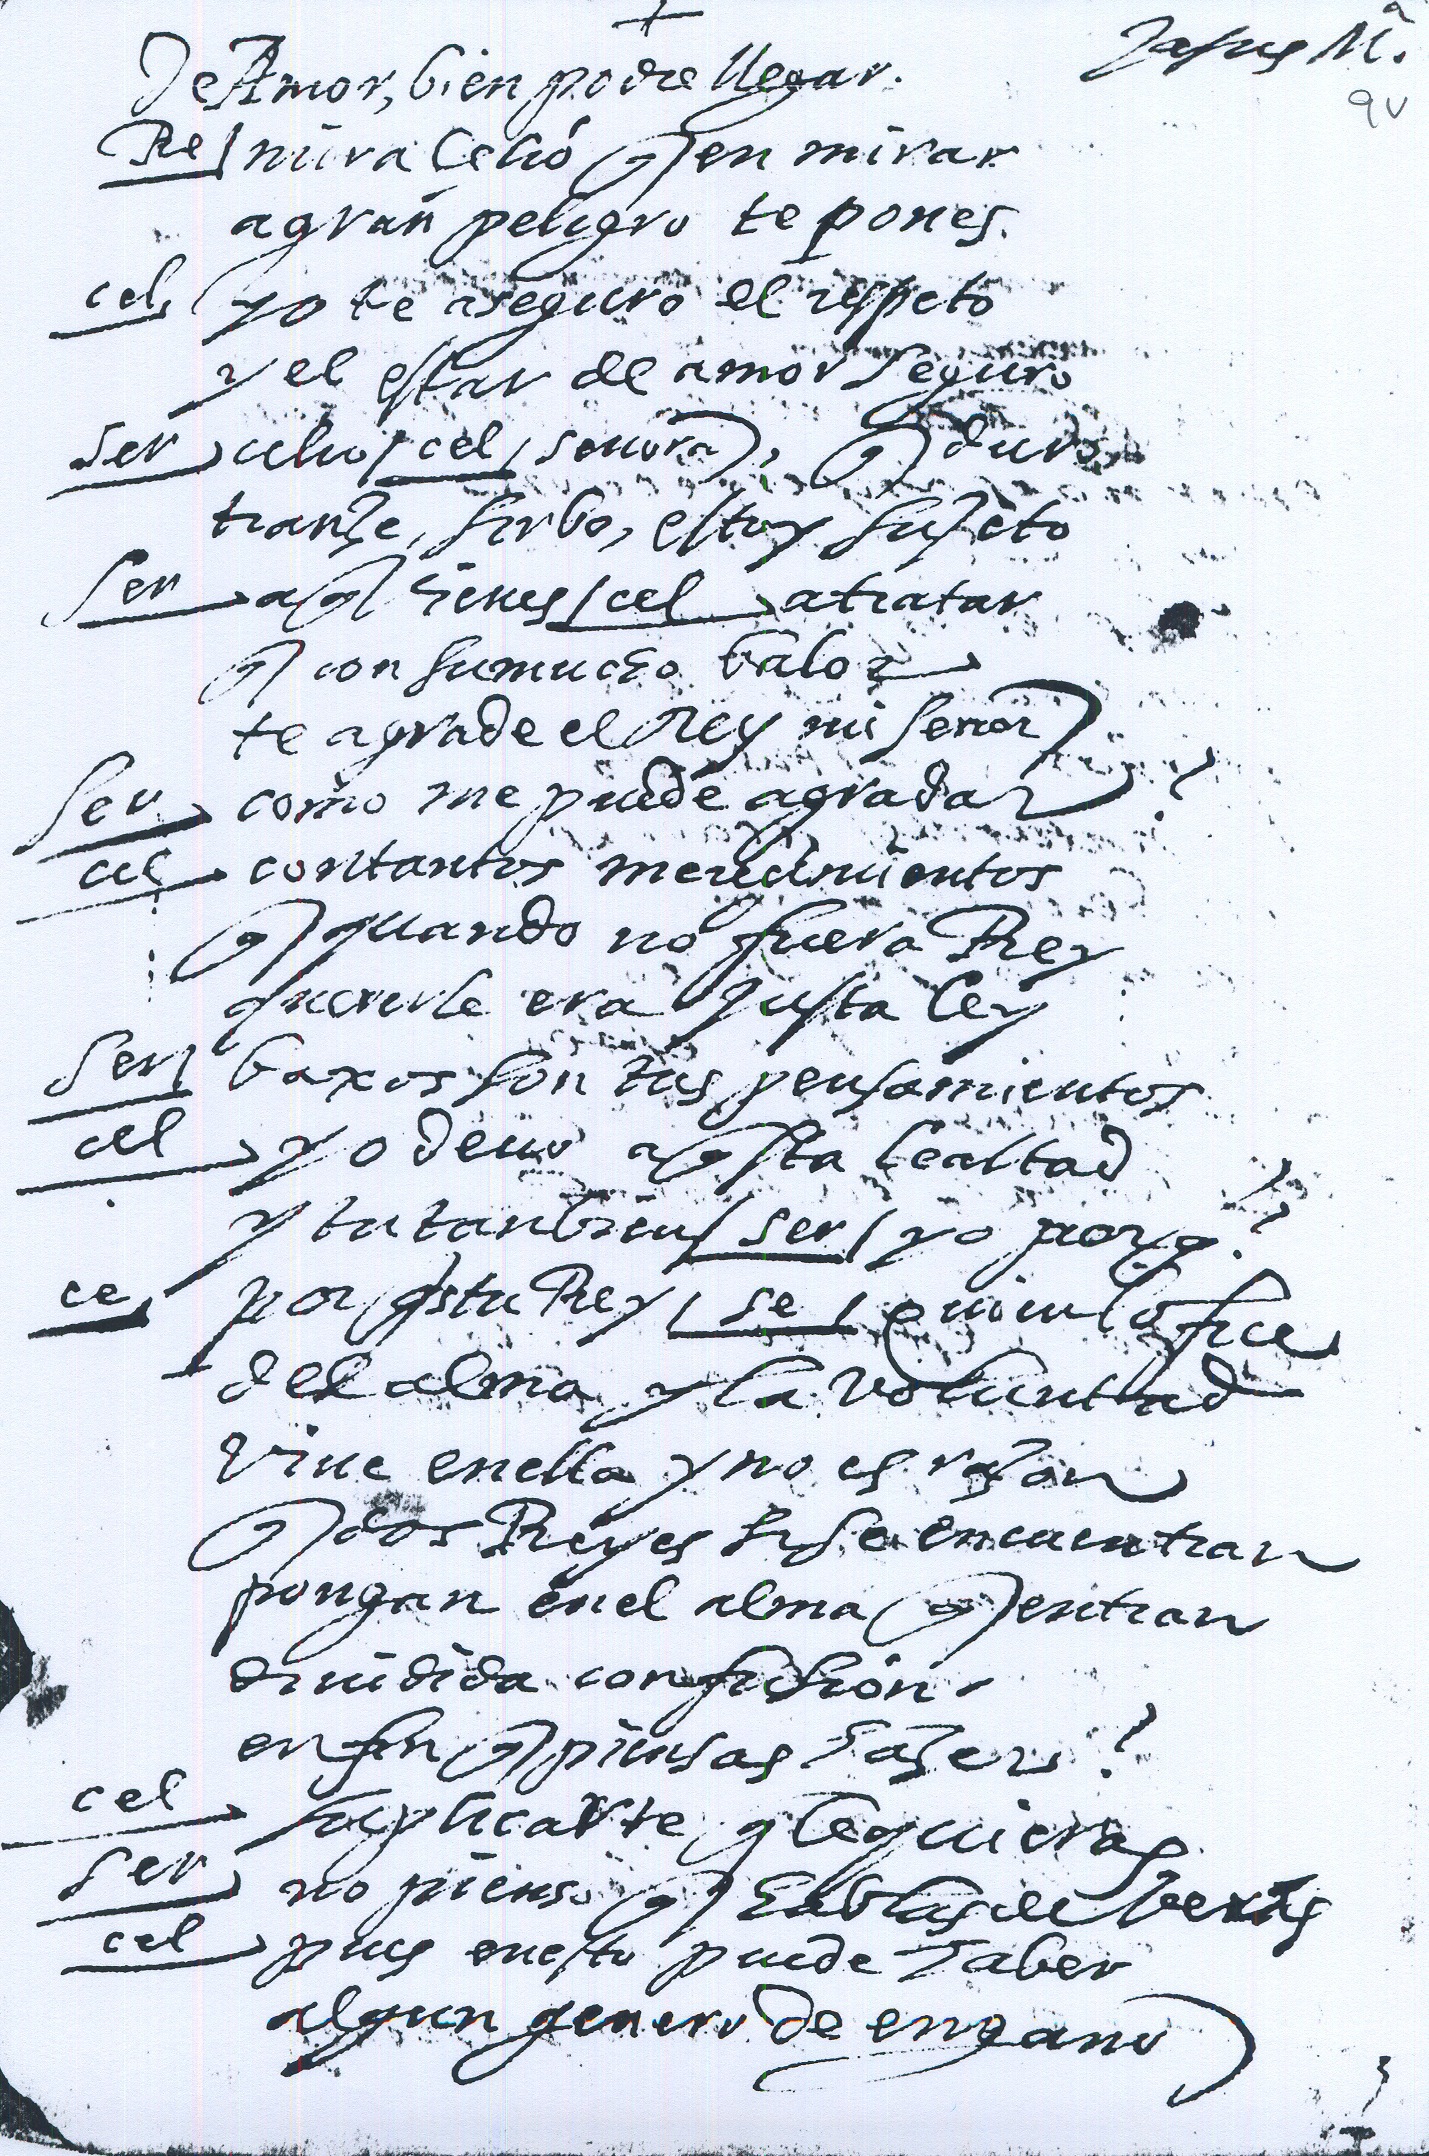 Jesus M.ª
9v
de Amor, bien podre llegar.
Re mira Celio q en mirar
a gran peligro te pones.
cel yo te aseguro el respeto
y el estar de amor seguro
ser celio cel señora, q duro
tranze, sirbo, estoy sujeto
Ser a q bienes cel a tratar
q con su mucho balor
te agrade el Rey mi señor
Ser como me puede agradar?
cel con tantos merecimientos
q quando no fuera Rey
quererle era justa ley
Ser baxos son tus pensamientos
cel yo deuo a qsta lealtad
y tu tanbien ser yo por q?
ce por q es tu Rey se quien lo fue
del alma y la voluntad
viue en ella y no es razon
q dos Reyes si se encuentran
pongan en el alma q entran
diuidida confusion.
en fin q piensas hazer?
cel suplicarte q le quieras
Ser no pienso q hablas de veras
cel pues en esto puede haber
algun genero de engano